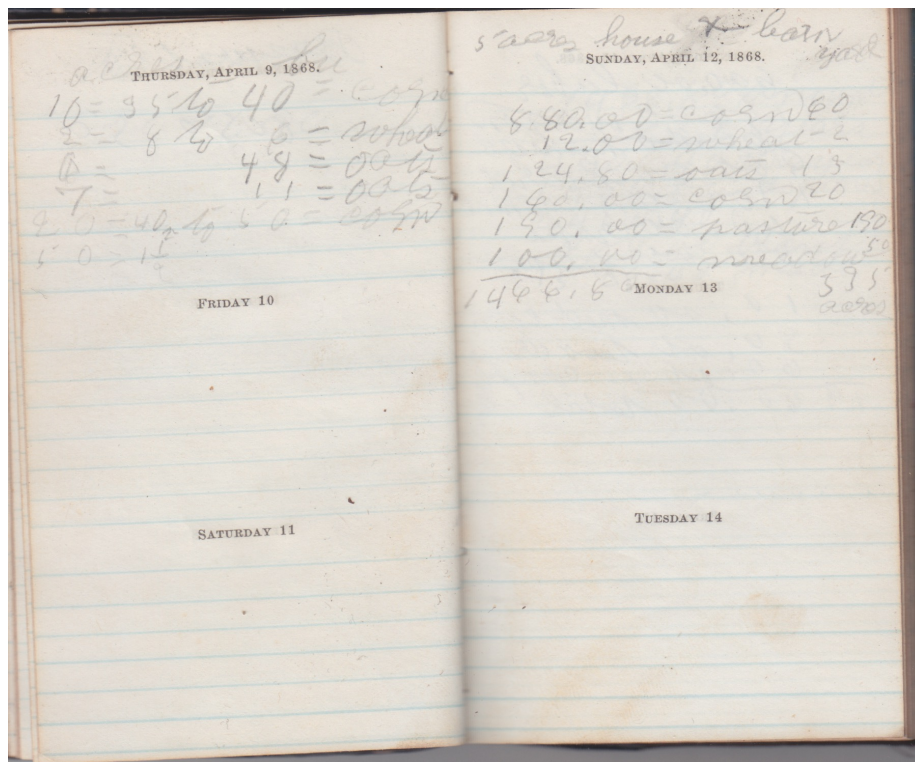 acres bu
THURSDAY, APRIL 9, 1868.
10 = 35 to 40 = corn
2 = 8 to 6 = wheat
6 = 48 = oats
7 = 11 = oats
20 = 40 to 50 = corn
50
FRIDAY 10
SATURDAY 11
5 acres house + barn
yard
SUNDAY, APRIL 12, 1868.
8.80.00 = corn 60
12.00 = wheat - 2
124.80 = oats 13
160.00 = corn 20
190.00 = pasture 190
100.00 = meadow 50
1466.80
MONDAY 13
395
acres
TUESDAY 14